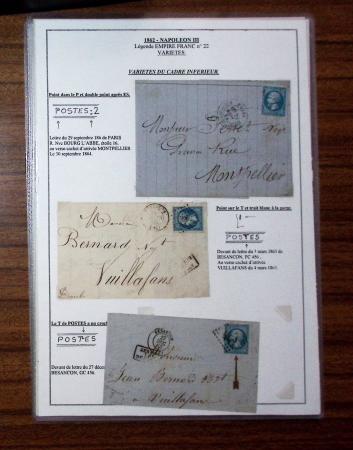 1862 - NAPOLEON III
Légende EMPIRE FRANC n° 22
VARIETES
VARIETES DU CADRE INFERIEUR
Point dans le P et double point après ES.
POSTES:2
Lettre du 29 septembre 186 de PARIS
R. Nve BOURG L'ABBE, étoile 16,
au verso cachet d'arrivée MONTPELLIER
Le 30 septembre 1864.
Monsieur
Grand Rue
Montpellier
Point sur le T et trait blanc à la
POSTES
Devant de lettre du 3 mars 1863 de
BESANCON, PC 456.
Au verso cachet d'arrivée
VUILLAFANS du 4 mars 1863.
Bernard Nt
Vuillafans
Le T de POSTES a un
POSTES
Devant de lettre du 27
BESANCON, GC 456.
Monsieur
Jean Bernard
à Vuillafans